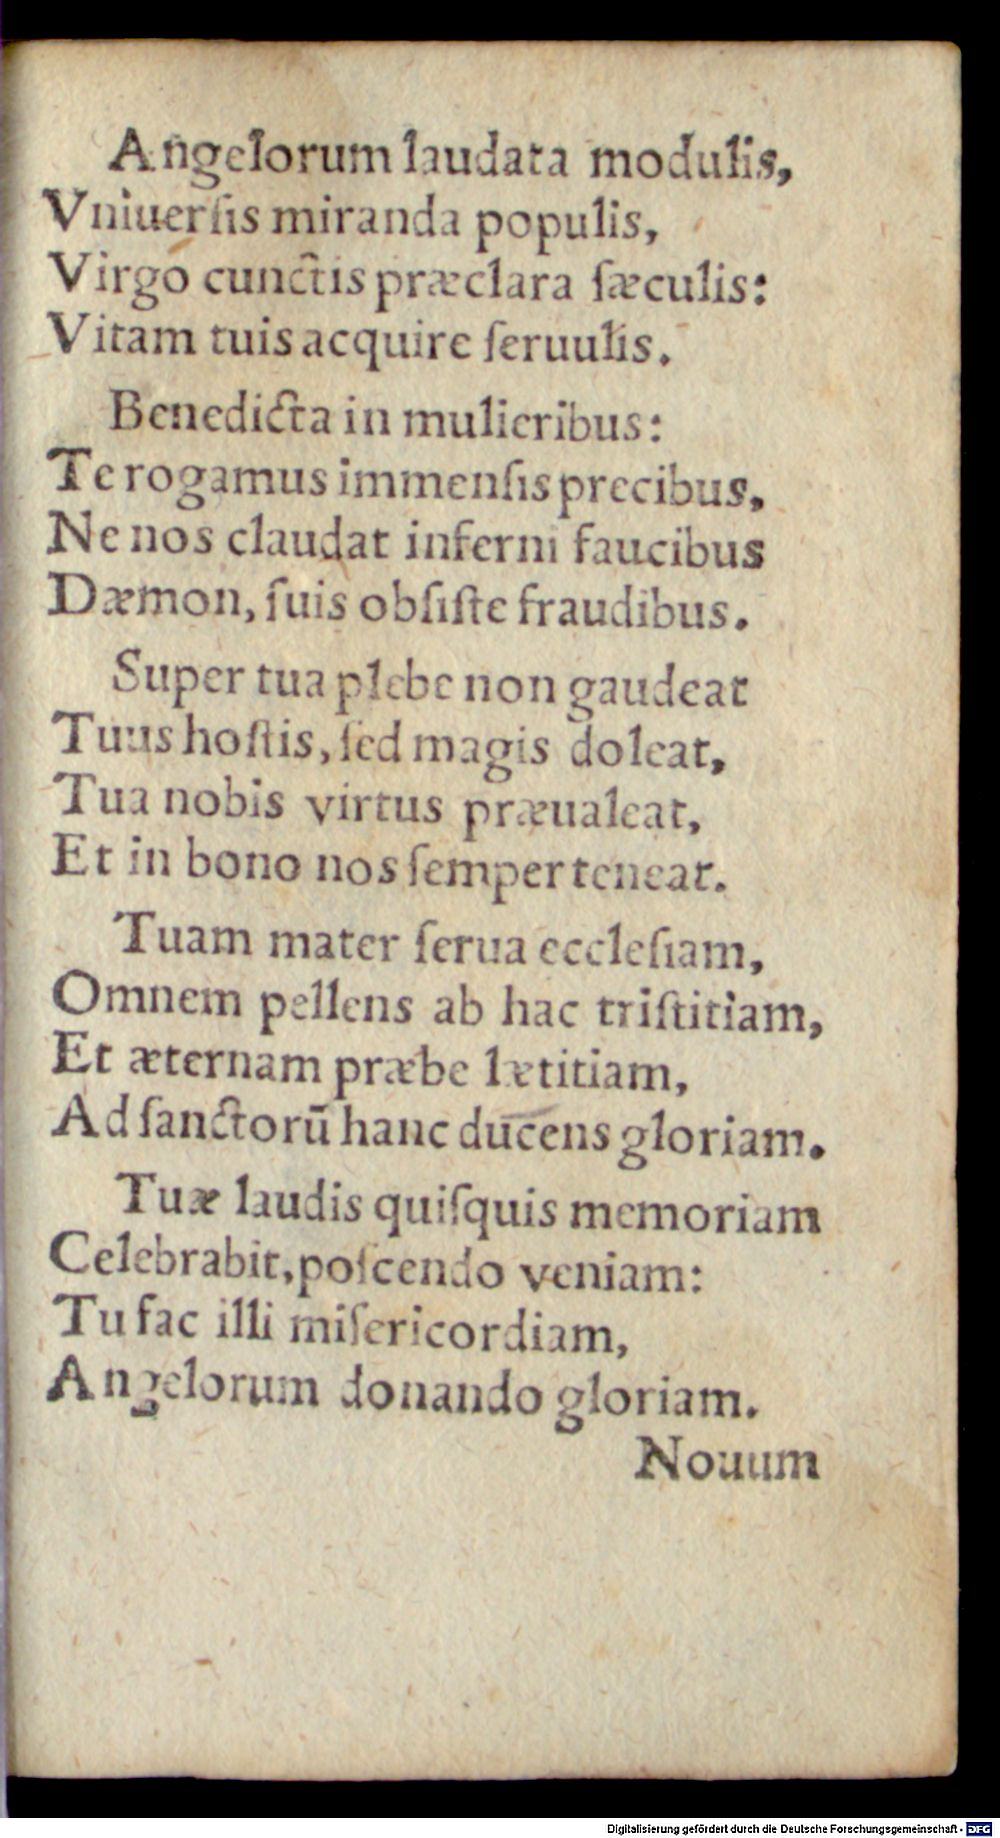 Angelorum laudata modulis,
Vniuerſis miranda populis,
Virgo cunctis præclara ſæculis:
Vitam tuis acquire ſeruulis.
Benedicta in mulieribus:
Te rogamus immenſis precibus,
Ne nos claudat inferni faucibus
Dæmon, ſuis obſiſte fraudibus.
Super tua plebe non gaudeat
Tuus hoſtis, ſed magis doleat,
Tua nobis virtus præualeat,
Et in bono nos ſemper teneat.
Tuam mater ſerua eccleſiam,
Omnem pellens ab hac triſtitiam,
Et æternam præbe lætitiam,
Ad ſanctorū hanc ducens gloriam.
Tuæ laudis quiſquis memoriam
Celebrabit, poſcendo veniam:
Tu fac illi miſericordiam,
Angelorum donando gloriam.
Nouum
Digitalisierung gefördert durch die Deutsche Forschungsgemeinschaft - DFG